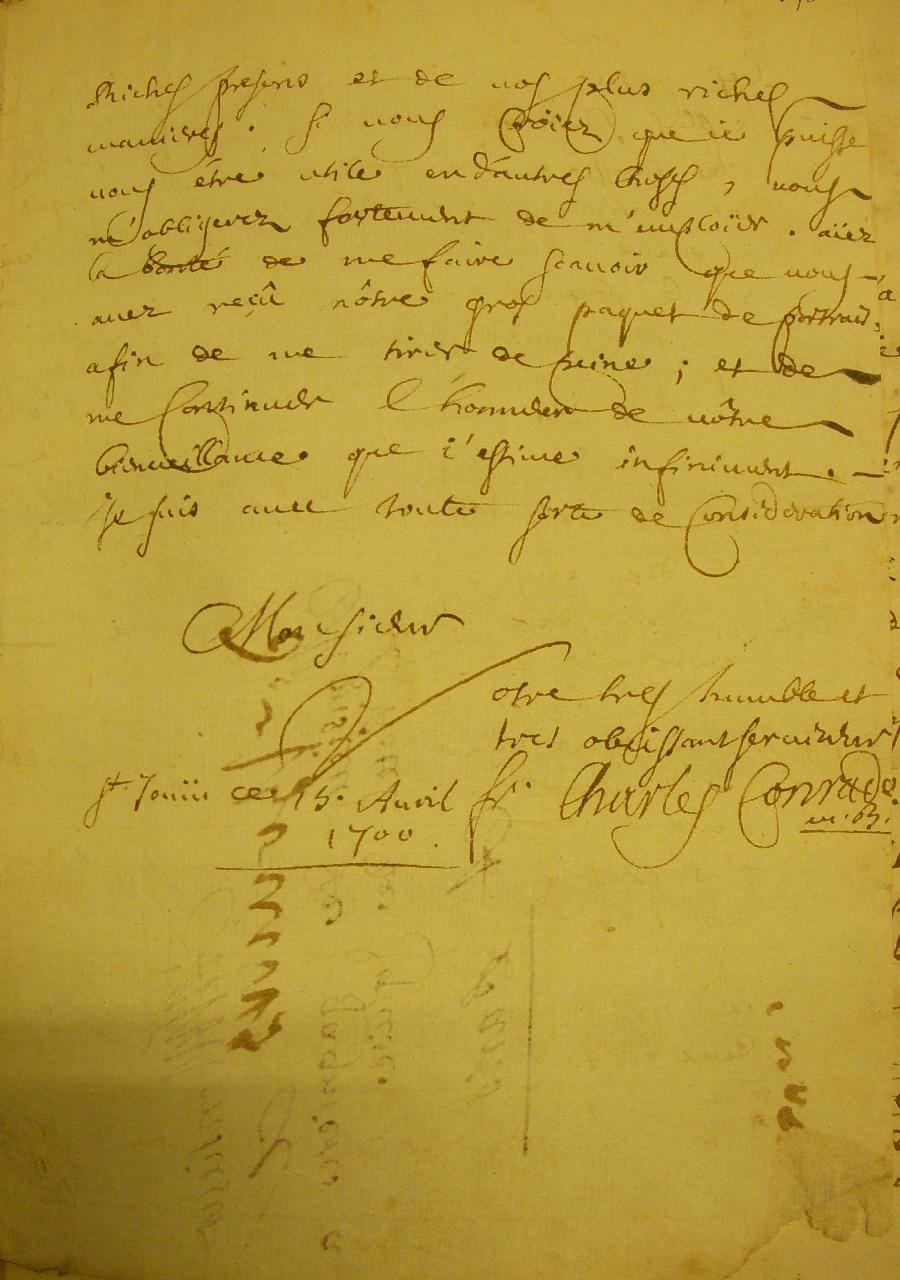 riches presens et de vos plus riches
manieres. Si vous croiez que ie puisse
vous étre utile en d'autres choses, vous
m'obligerez fortement de m'emploïer. aïez
la bonté de me faire scavoir que vous
avez reçû nôtre gros paquet de portraits,
afin de me tirer de peine; et de
me Continuer l'honneur de vôtre
bienveillance que i'estime infiniment.
Je suis avec toute sorte de Consideration
Monsieur
Votre tres humble et
tres obeissant serviteur
ce 15. Avril fr. Charles Conrade
1700. m.